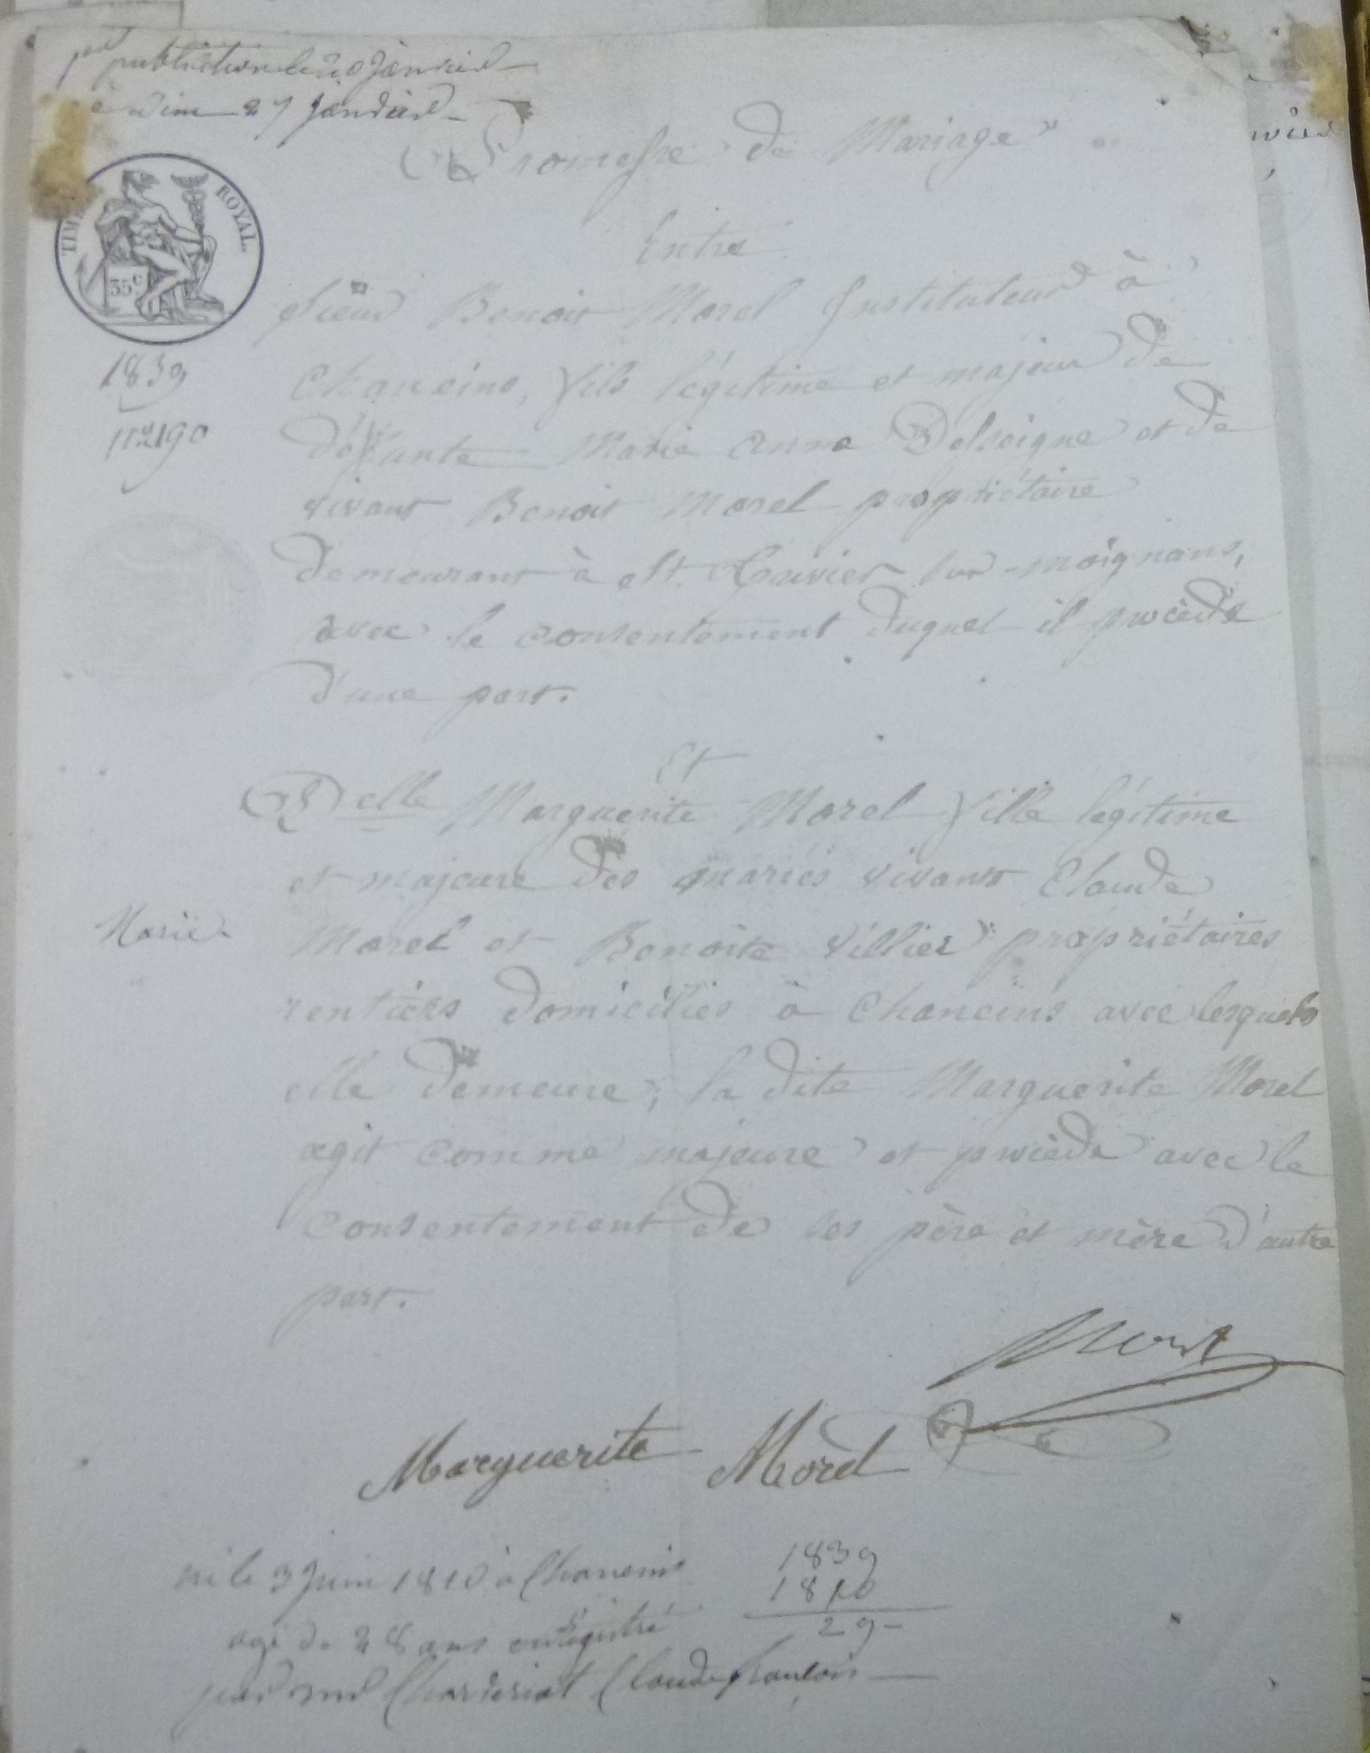 publication le 20 Janvier
27 Janvier
Promesse de Mariage
TIMBRE ROYAL.
35 c
Entre
Sieur Benoit Morel Instituteur à
1839
Chaneins, fils légitime et majeur de
défunte Marie Anne Delseigne et de
vivant Benoit Morel propriétaire
demeurant à St. Trivier sur-moignans,
avec le consentement duquel il procède
d'une part.
Et
Delle Marguerite Morel fille légitime
et majeure des mariés vivant Claude
Morel et Benoite Villier propriétaires
rentiers domiciliés à Chaneins avec lesquels
elle demeure; la dite Marguerite Morel
agit comme majeure et procède avec le
consentement de ses père et mère d'autre
part.
Morel
Marguerite Morel
né le 3 Juin 1810 à Chaneins
agé de 28 ans enregistré
par Claude françois
1839
1810
29